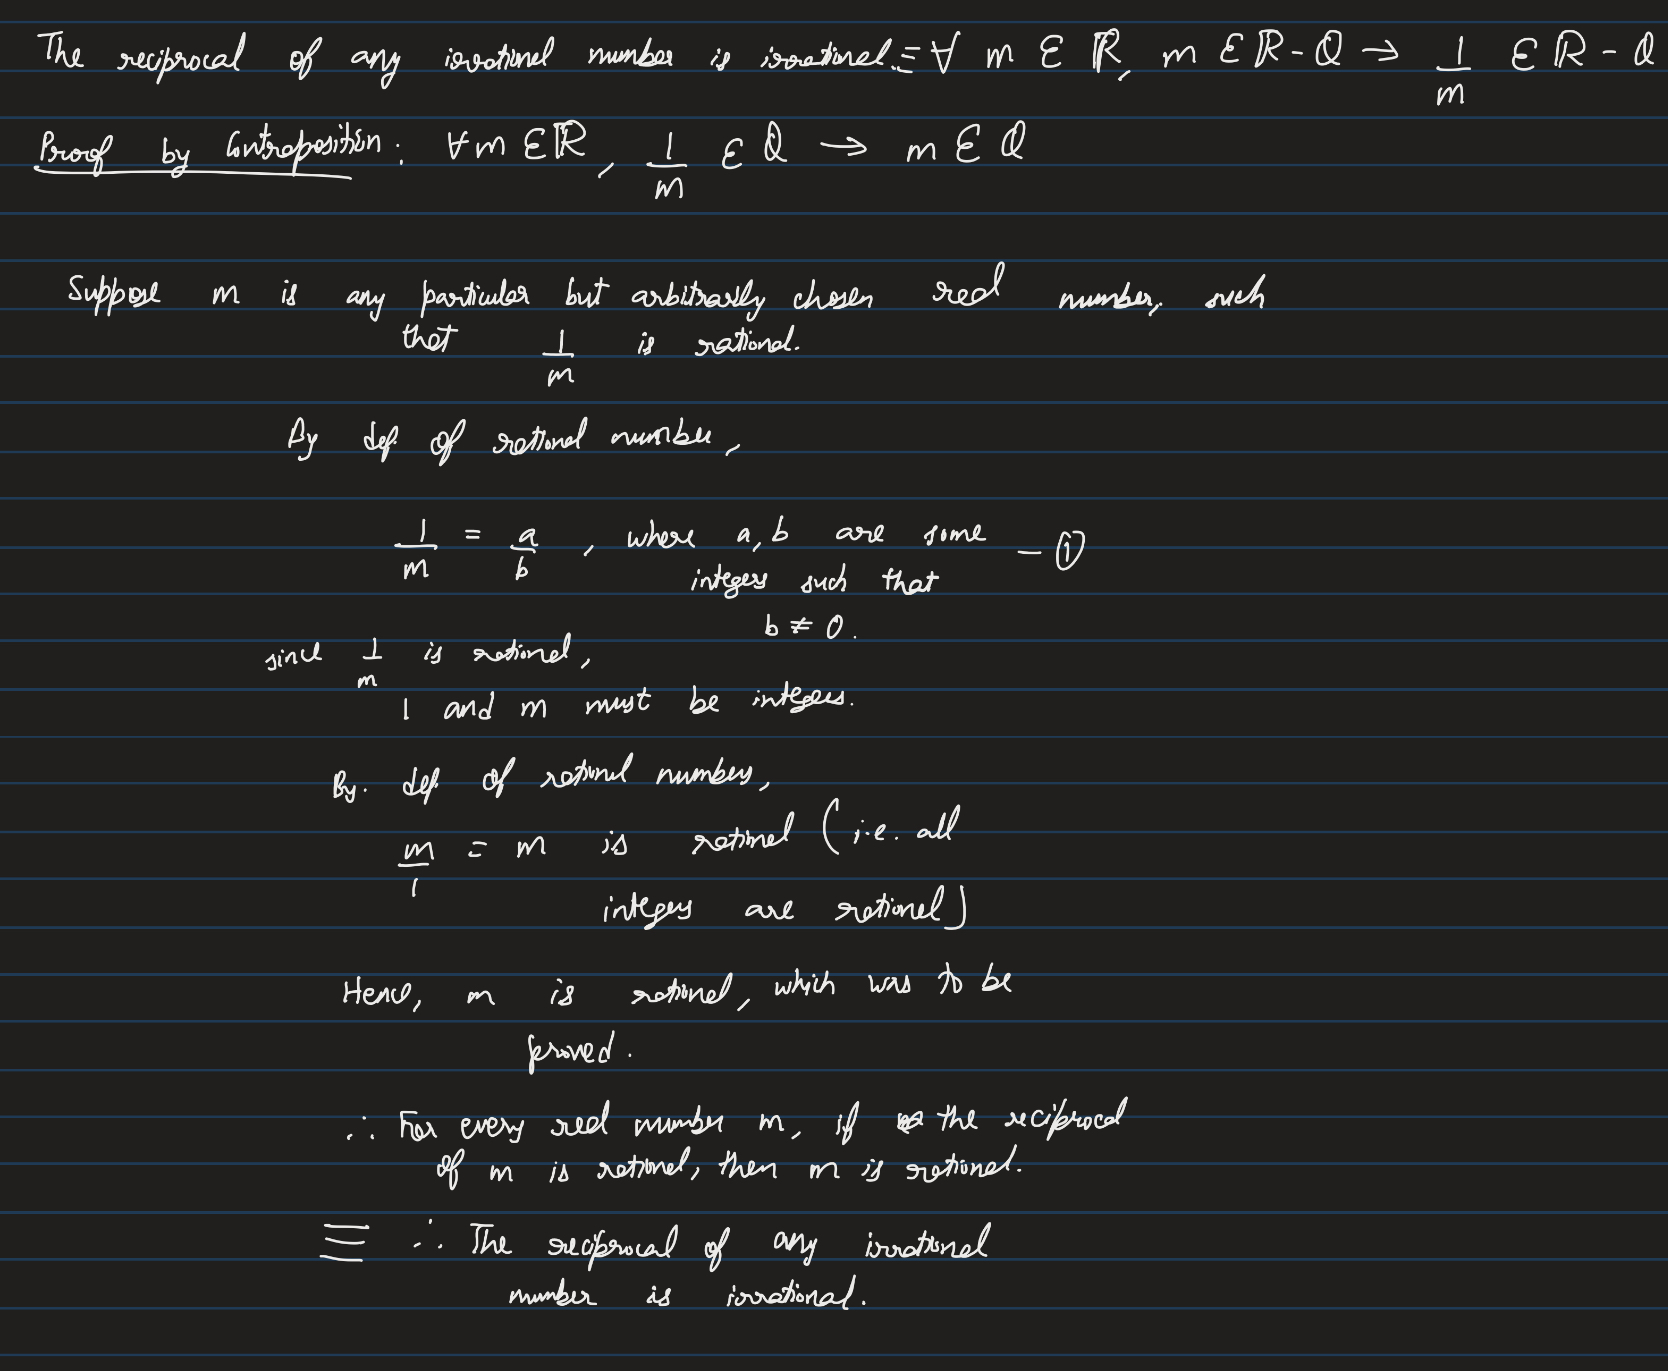 The reciprocal of any irrational number is irrational. ≡ ∀ m ∈ ℝ, m ∈ ℝ - Q → 1/m ∈ ℝ - Q
Proof by Contraposition: ∀m ∈ ℝ, 1/m ∈ Q → m ∈ Q
Suppose m is any particular but arbitrarily chosen real number, such
that 1/m is rational.
By def. of rational number,
1/m = a/b, where a, b are some - ①
integers such that
b ≠ 0.
since 1/m is rational,
1 and m must be integers.
By. def. of rational numbers,
m/1 = m is rational (i.e. all
integers are rational)
Hence, m is rational, which was to be
proved.
∴ For every real number m, if the reciprocal
of m is rational, then m is rational.
≡ ∴ The reciprocal of any irrational
number is irrational.